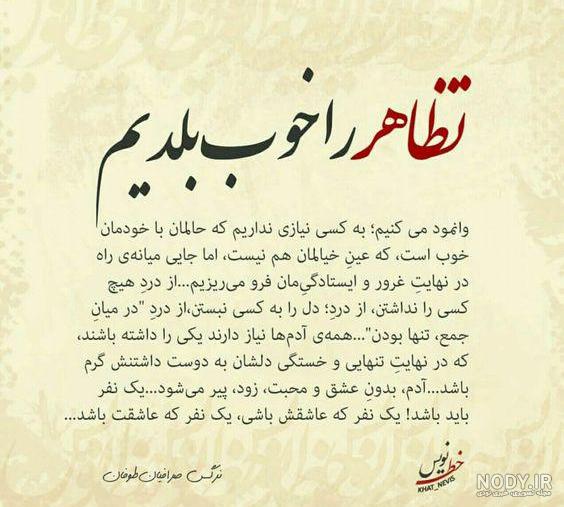 تظاهر را خوب بلدیم
وانمود می کنیم؛ به کسی نیازی نداریم که حالمان با خودمان
خوب است، که عینِ خیالمان هم نیست، اما جایی میانه‌ی راه
در نهایتِ غرور و ایستادگیِ‌مان فرو می‌ریزیم...از دردِ هیچ
کسی را نداشتن، از دردِ؛ دل را به کسی نبستن،از دردِ "در میانِ
جمع، تنها بودن"...همه‌ی آدم‌ها نیاز دارند یکی را داشته باشند،
که در نهایتِ تنهایی و خستگی دلشان به دوست داشتنش گرم
باشد...آدم، بدونِ عشق و محبت، زود، پیر می‌شود...یک نفر
باید باشد! یک نفر که عاشقش باشی، یک نفر که عاشقت باشد...
نرگس صرافیان طوفان
خط نویس
KHAT_NEVIS
NODY.IR
مجله تصویری، خبری نودی